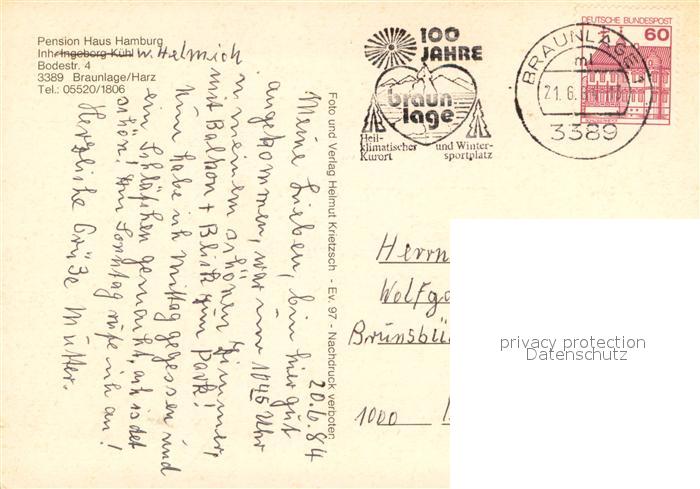 Pension Haus Hamburg
Inh. Ingeborg Kühl W. Helmich
Bodestr. 4
3389 Braunlage/Harz
Tel.: 05520/1806
20.6.84
Meine Lieben, bin hier gut
angekommen, war um 10 45 Uhr
in meinem schönen Zimmer,
mit Balkon + Blick zum Park!
Nun habe ich Mittag gegessen und
ein Schläfchen gemacht, ach ist det
schön! Am Sonntag rufe ich an!
Herzliche Grüße Mutter.
Foto und Verlag Helmut Krietzsch - Ev. 97 - Nachdruck verboten
100
JAHRE
braun
lage
Heil-
klimatischer
Kurort
und Winter-
sportplatz
BRAUNLAGE
ml
21.6.
3389
DEUTSCHE BUNDESPOST
60
Herrn
Wolfga
Brunsbü
1000
privacy protection
Datenschutz